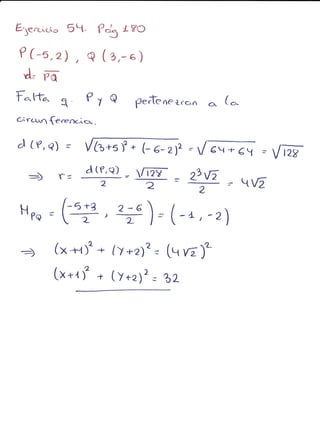 Ejercicio 54. Pág 180
P(-5,2) , Q(3,-6)
d= PQ
Falta q. P y Q pertenezcan a la
circunferencia.
d(P,Q) = √(3+5)² + (-6-2)² = √64+64 = √128
⇒ r = d(P,Q)/2 = √128/2 = 2³√2/2 = 4√2
M_PQ = (-5+3/2 , 2-6/2) = (-1, -2)
⇒ (x+1)² + (y+2)² = (4√2)²
(x+1)² + (y+2)² = 32